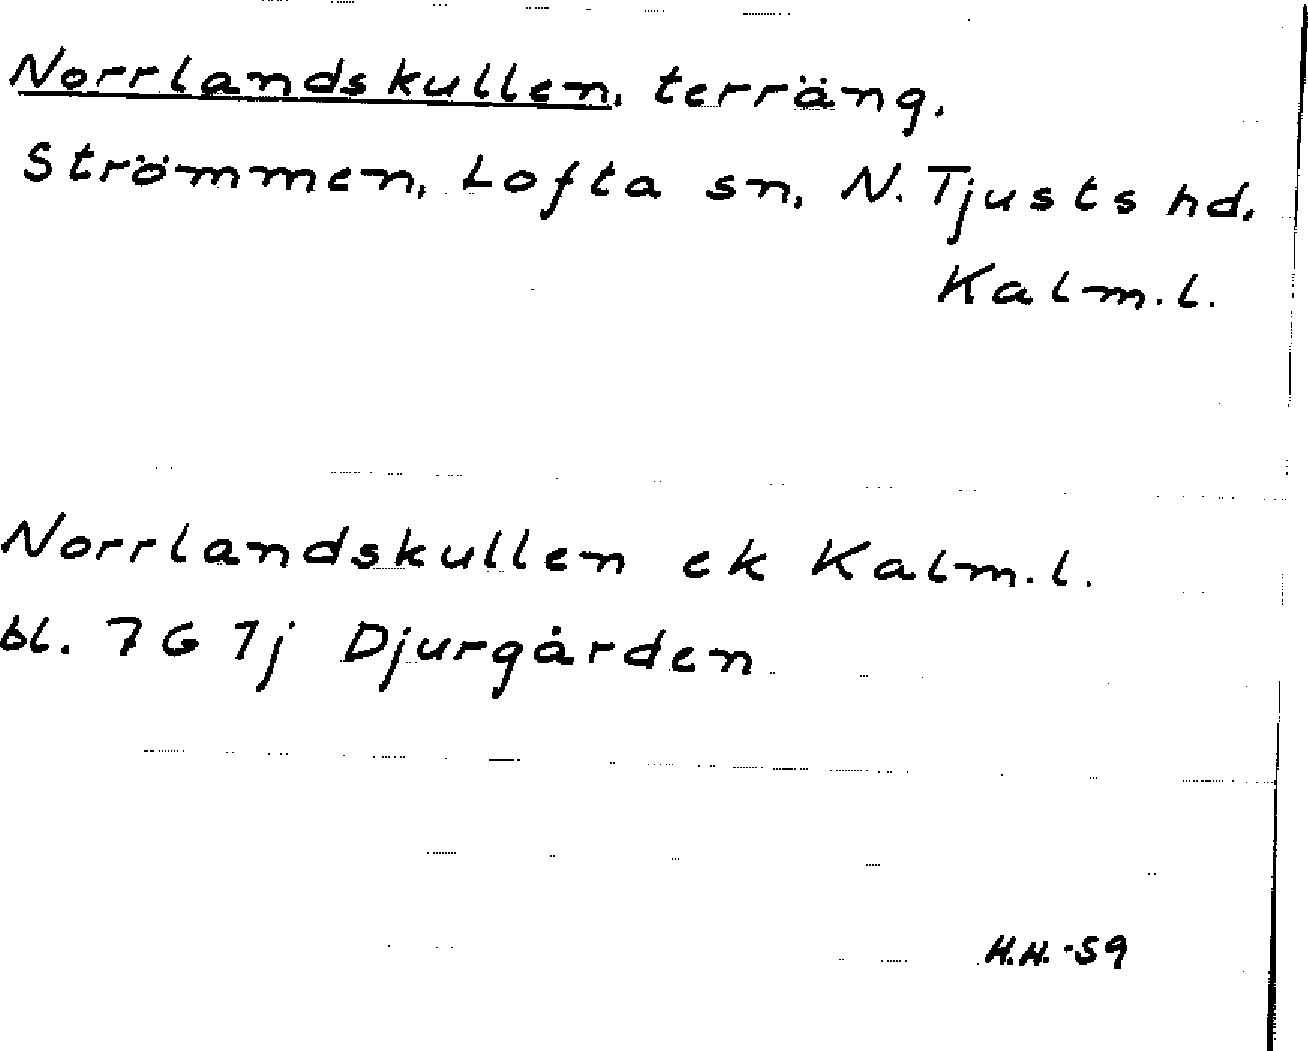 Norrlandskullen, terräng.
Strömmen, Lofta sn, N. Tjusts hd,
Kalm.l.
Norrlandskullen ek Kalm.l.
bl. 7G 7j Djurgården
H.H. -59